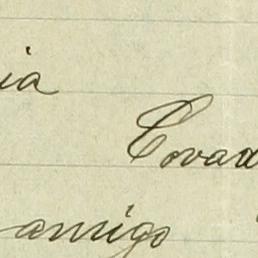 ia
Covad
amigo